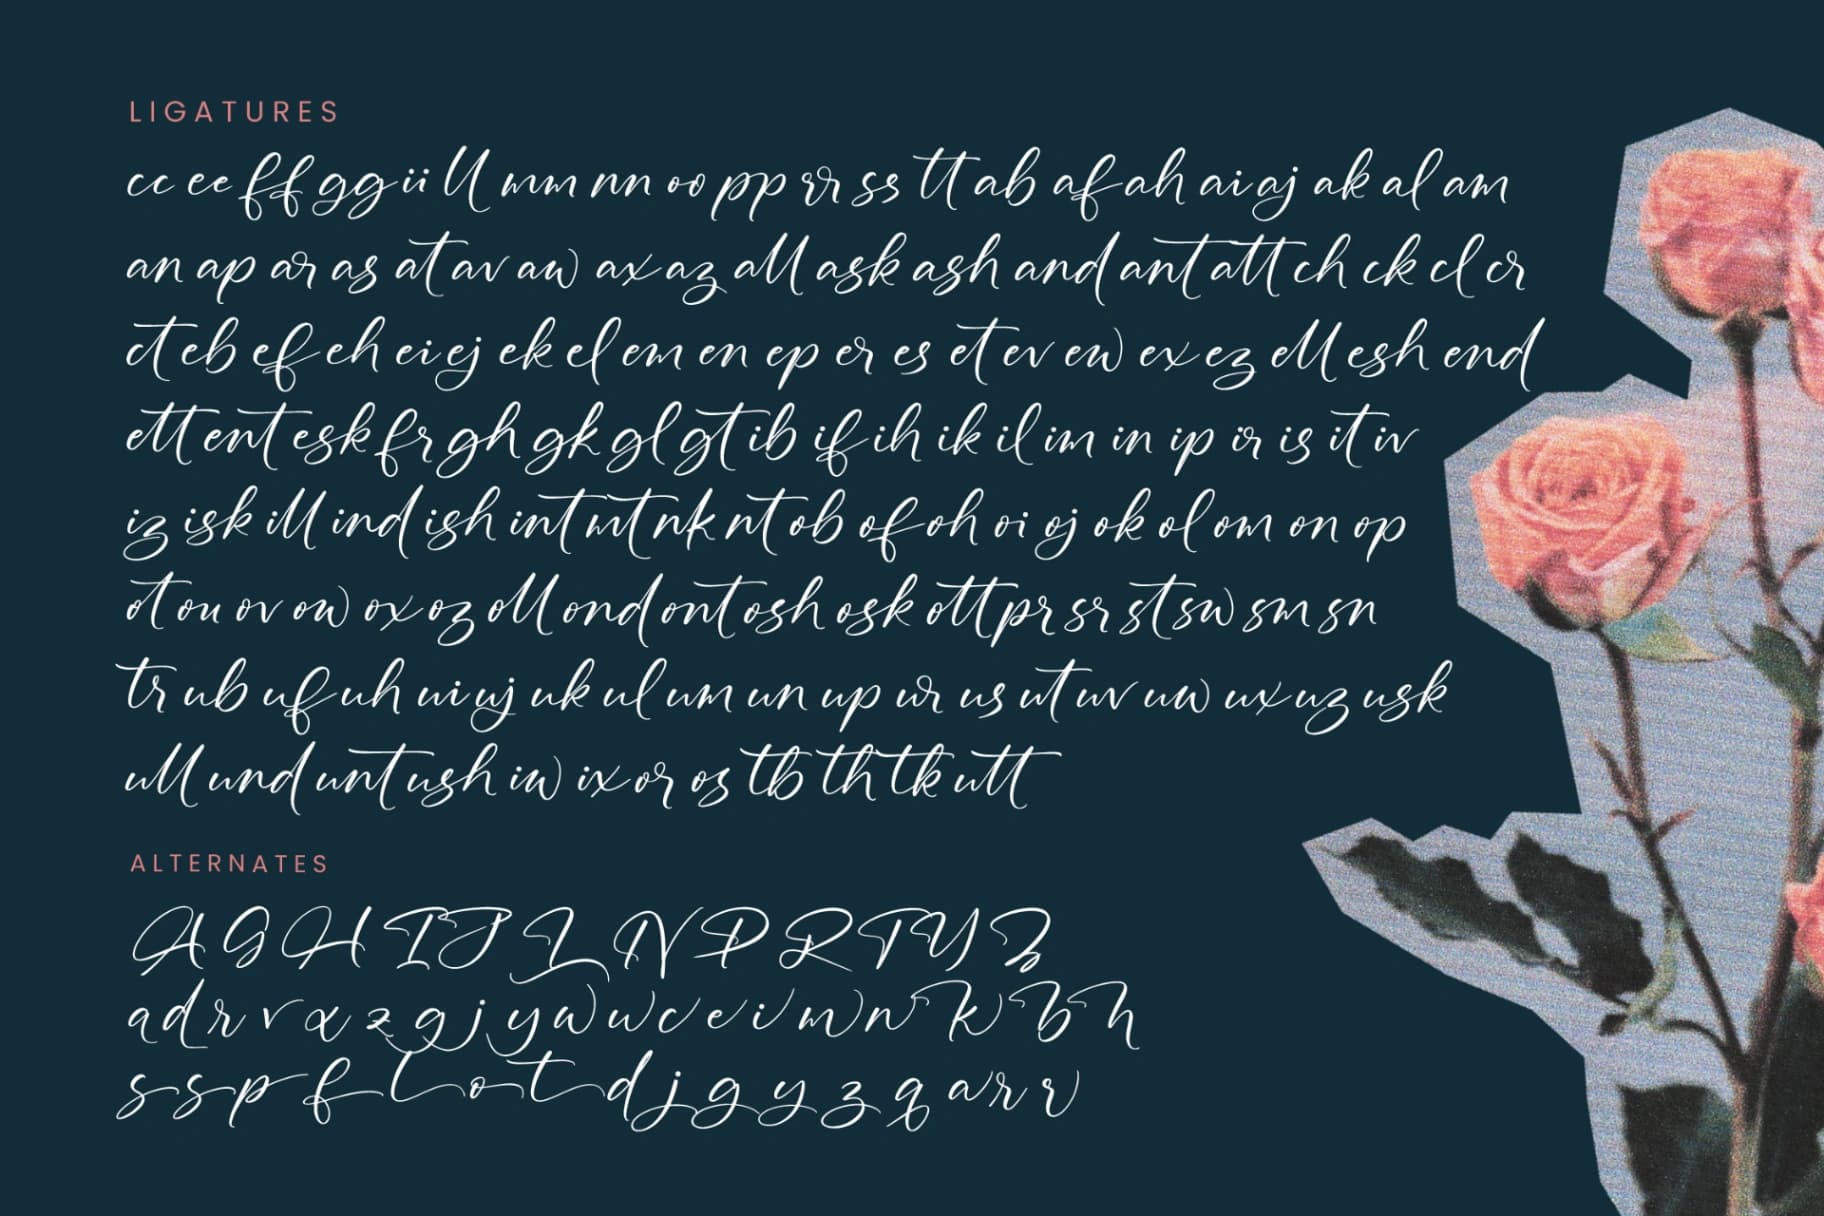 LIGATURES
cc ee ff gg ii ll mm nn oo pp rr ss tt ab af ah ai aj ak al am
an ap ar as at av aw ax az all ask ash and ant att ch ck cl cr
ct eb ef eh ei ej ek el em en ep er es et ev ew ex ez ell esh end
ett ent esk fr gh gk gl gt ib if ih ik il im in ip ir is it iv
iz isk ill ind ish int mt nk nt ob of oh oi oj ok ol om on op
ot ou ov ow ox oz oll ond ont osh osk ott pr sr st sw sm sn
tr ub uf uh ui uj uk ul um un up ur us ut uv uw ux uz usk
ull und unt ush iw ix or os tb th tk utt
ALTERNATES
A G H I J L N P R T Y Z
a d r v x z g j y w w c e i m n k b h
s s p f l o t d j g y z q a r r